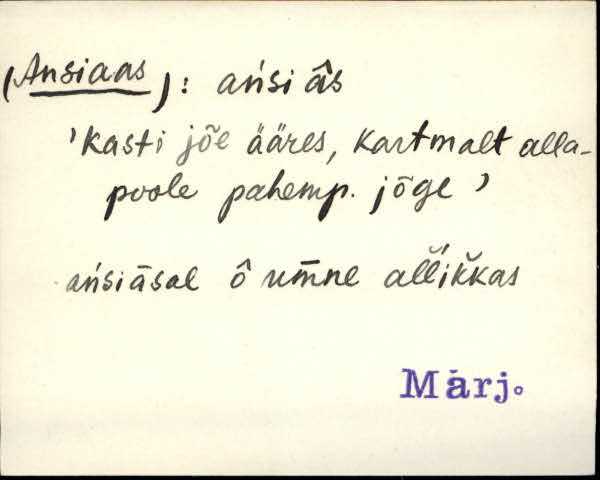 (Ansiaas): ańsi âs
'Kasti jõe ääres, Kartmalt alla-
poole pahemp. jõge'
ańsiāsal ô um̄ne allikkas
Märj.